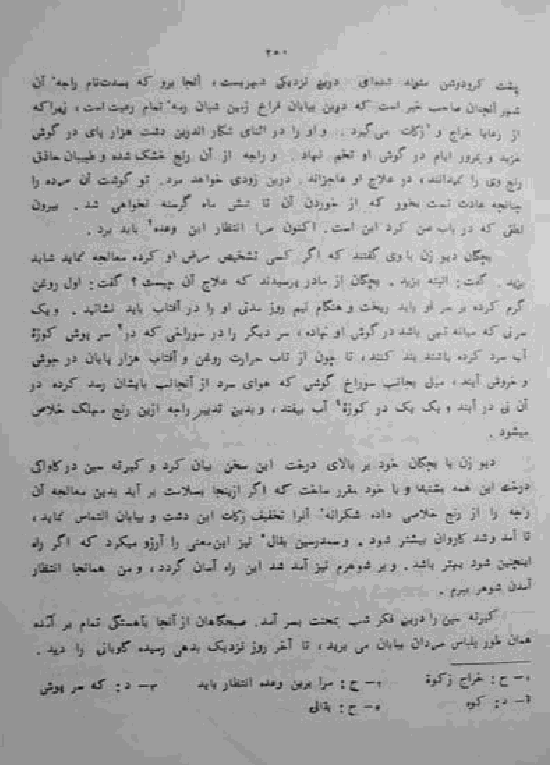 ۲۵۰
پشت کرودرشن شهریست، آنجا برو که
شهر آنجان صاحب خبر است که درین بیابان فراخ زمین شبان رمه تمام رعیت است، زیراکه
از رعایا خراج و زکات می‌گیرد. و او را در اثنای شکار الدرین دشت هزار پای در گوش
خزید و بمرور ایام در گوش او تخم نهاد. و راجه از آن رنج خشک شده و طبیبان حاذق
رنج وی را نمیدانند، در علاج او عاجزاند. درین زودی خواهد مرد. تو گوشت آن مرده را
چنانچه عادت تست بخور که از خوردن آن تا شش ماه گرسنه نخواهی شد. بیرون
لطفی که در باب من کرد این است. اکنون مرا انتظار این وعده باید برد.
بچگان دیو زن با وی گفتند که اگر کسی تشخیص مرض او کرده معالجه نماید شاید
بزید. گفت: البته بزید. بچگان از مادر پرسیدند که علاج آن چیست؟ گفت: اول روغن
گرم کرده بر سر او باید ریخت و هنگام نیم روز مدتی او را در آفتاب باید نشانید. و یک
سر نی که میانه تهی باشد در گوش او نهاده، سر دیگر را در سوراخی که در سر پوش کوزۀ
آب سرد کرده باشند بند کنند، تا چون از تاب حرارت روغن و آفتاب هزار پایان در جوش
و خروش آیند، میل بجانب سوراخ گوشی که هوای سرد از آنجانب بایشان رسد کرده در
آن نی در آیند و یک یک در کوزۀ آب بیفتند، و بدین تدبیر راجه ازین رنج مهلک خلاص
میشود.
دیو زن با بچگان خود بر بالای درخت این سخن بیان کرد و کیرته سین در کاواکی
درخت این همه بشنید و با خود مقرر ساخت که اگر ازینجا بسلامت بر آید بدین معالجه آن
راجه را از رنج خلاصی داده شکرانه آنرا تخفیف زکات این دشت و بیابان التماس نماید،
تا آمد و شد کاروان بیشتر شود. و سمدرسین بقال نیز این معنی را آرزو میکرد که اگر راه
اینچنین شود بهتر باشد. و بر شوهرم نیز آمد شد این راه آسان گردد، و من همانجا انتظار
آمدن شوهر ببرم.
کیرته سین را درین فکر شب بمحنت بسر آمد. صبحگاهان از آنجا بآهستگی تمام بر آمده
همان طور بلباس مردان بیابان می برید، تا آخر روز نزدیک بدهی رسیده گوبانی را دید.
۱– ج: خراج زکوة ۲– ج: مرا برین وعده انتظار باید ۳– د: که سر پوش
۴– د: کوه ۵– ج: بقالی